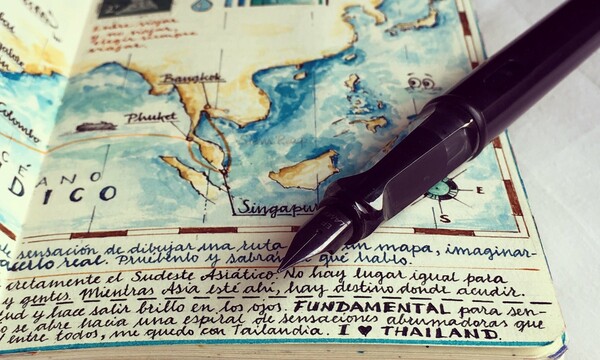 Entre viajar
y no viajar,
elegir siempre
viajar.
Bangkok
Phuket
Colombo
OCÉANO
ÍNDICO
Singapur
E
S
sensación de dibujar una ruta en un mapa, imaginar-
hacerlo real. Pruébenlo y sabrán de qué hablo.
cretamente el Sudeste Asiático. No hay lugar igual para
y gentes. Mientras Asia esté ahí, hay destino donde acudir.
ud y hace salir brillo en los ojos. FUNDAMENTAL para sen-
se abre hacia una espiral de sensaciones abrumadoras que
entre todos, me quedo con Tailandia. I ♥ THAILAND.